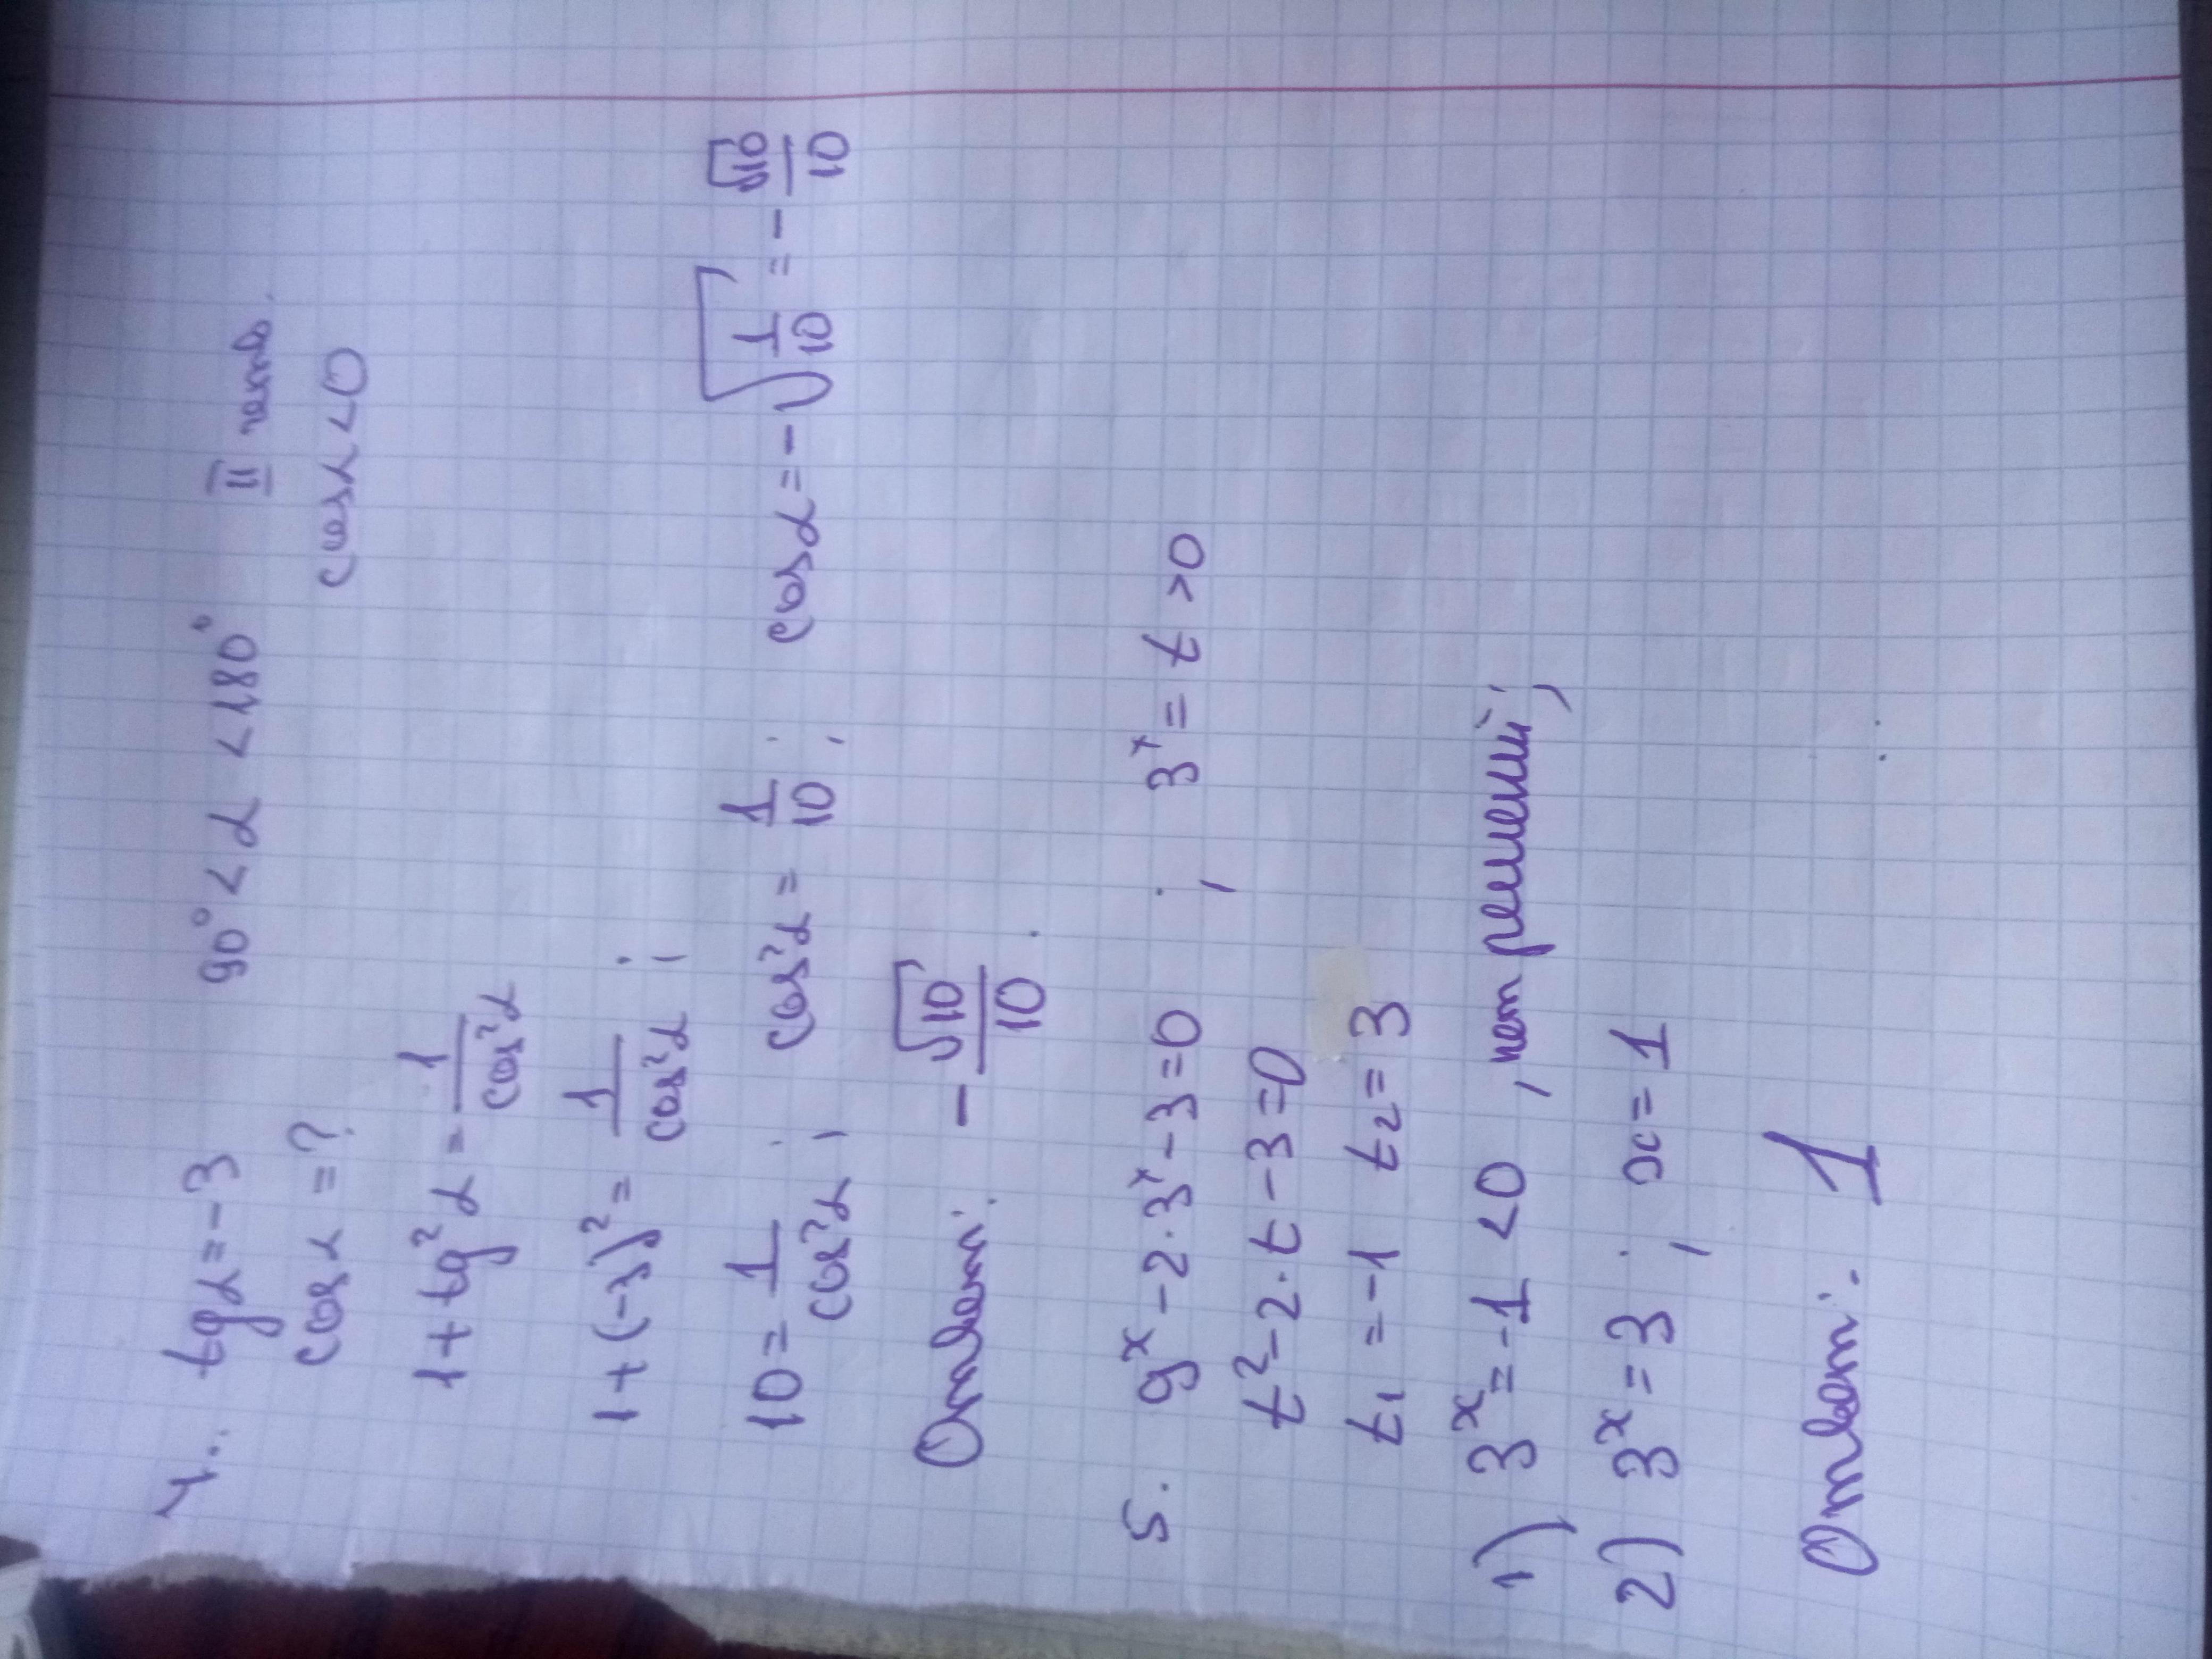 4. tgα = -3 90° < α < 180° II четв.
cos α = ? cos α < 0
1 + tg²α = 1/cos²α
1 + (-3)² = 1/cos²α ;
10 = 1/cos²α ; cos²α = 1/10 ; cos α = -√(1/10) = -√10/10
Ответ: -√10/10.
5. 9ˣ - 2·3ˣ - 3 = 0 ; 3ˣ = t > 0
t² - 2·t - 3 = 0
t₁ = -1 t₂ = 3
1) 3ˣ = -1 < 0 , нет решений;
2) 3ˣ = 3 ; x = 1
Ответ: 1